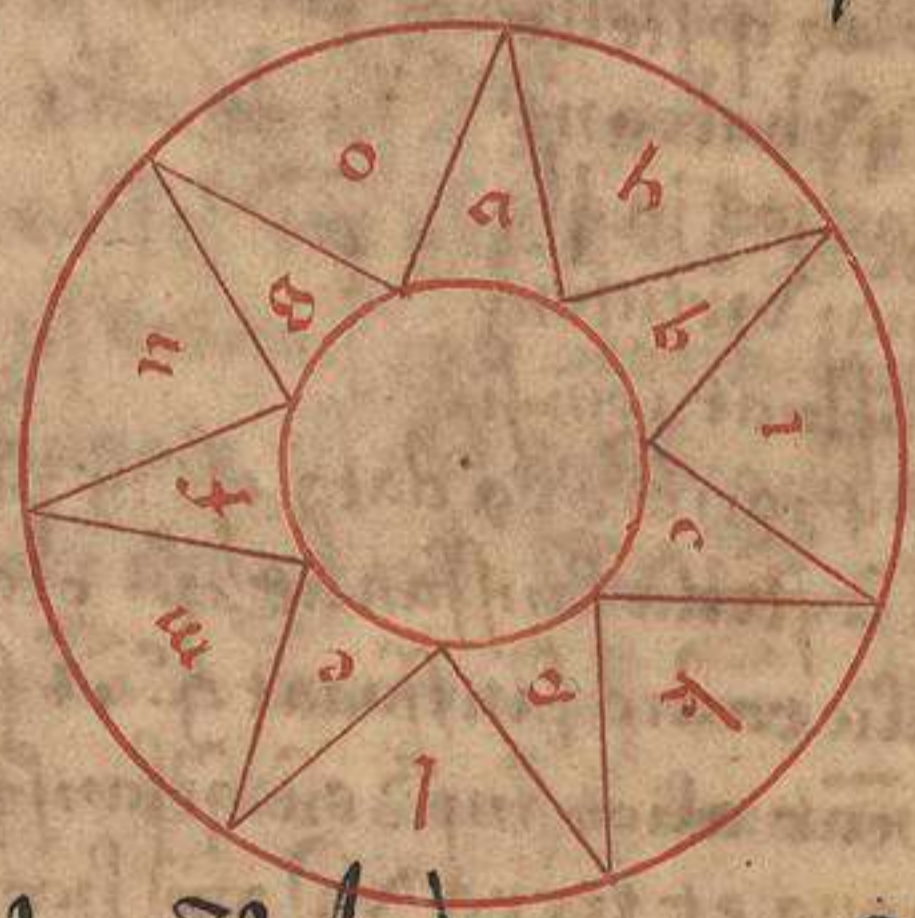 a
h
b
i
c
k
d
l
e
m
f
n
g
o